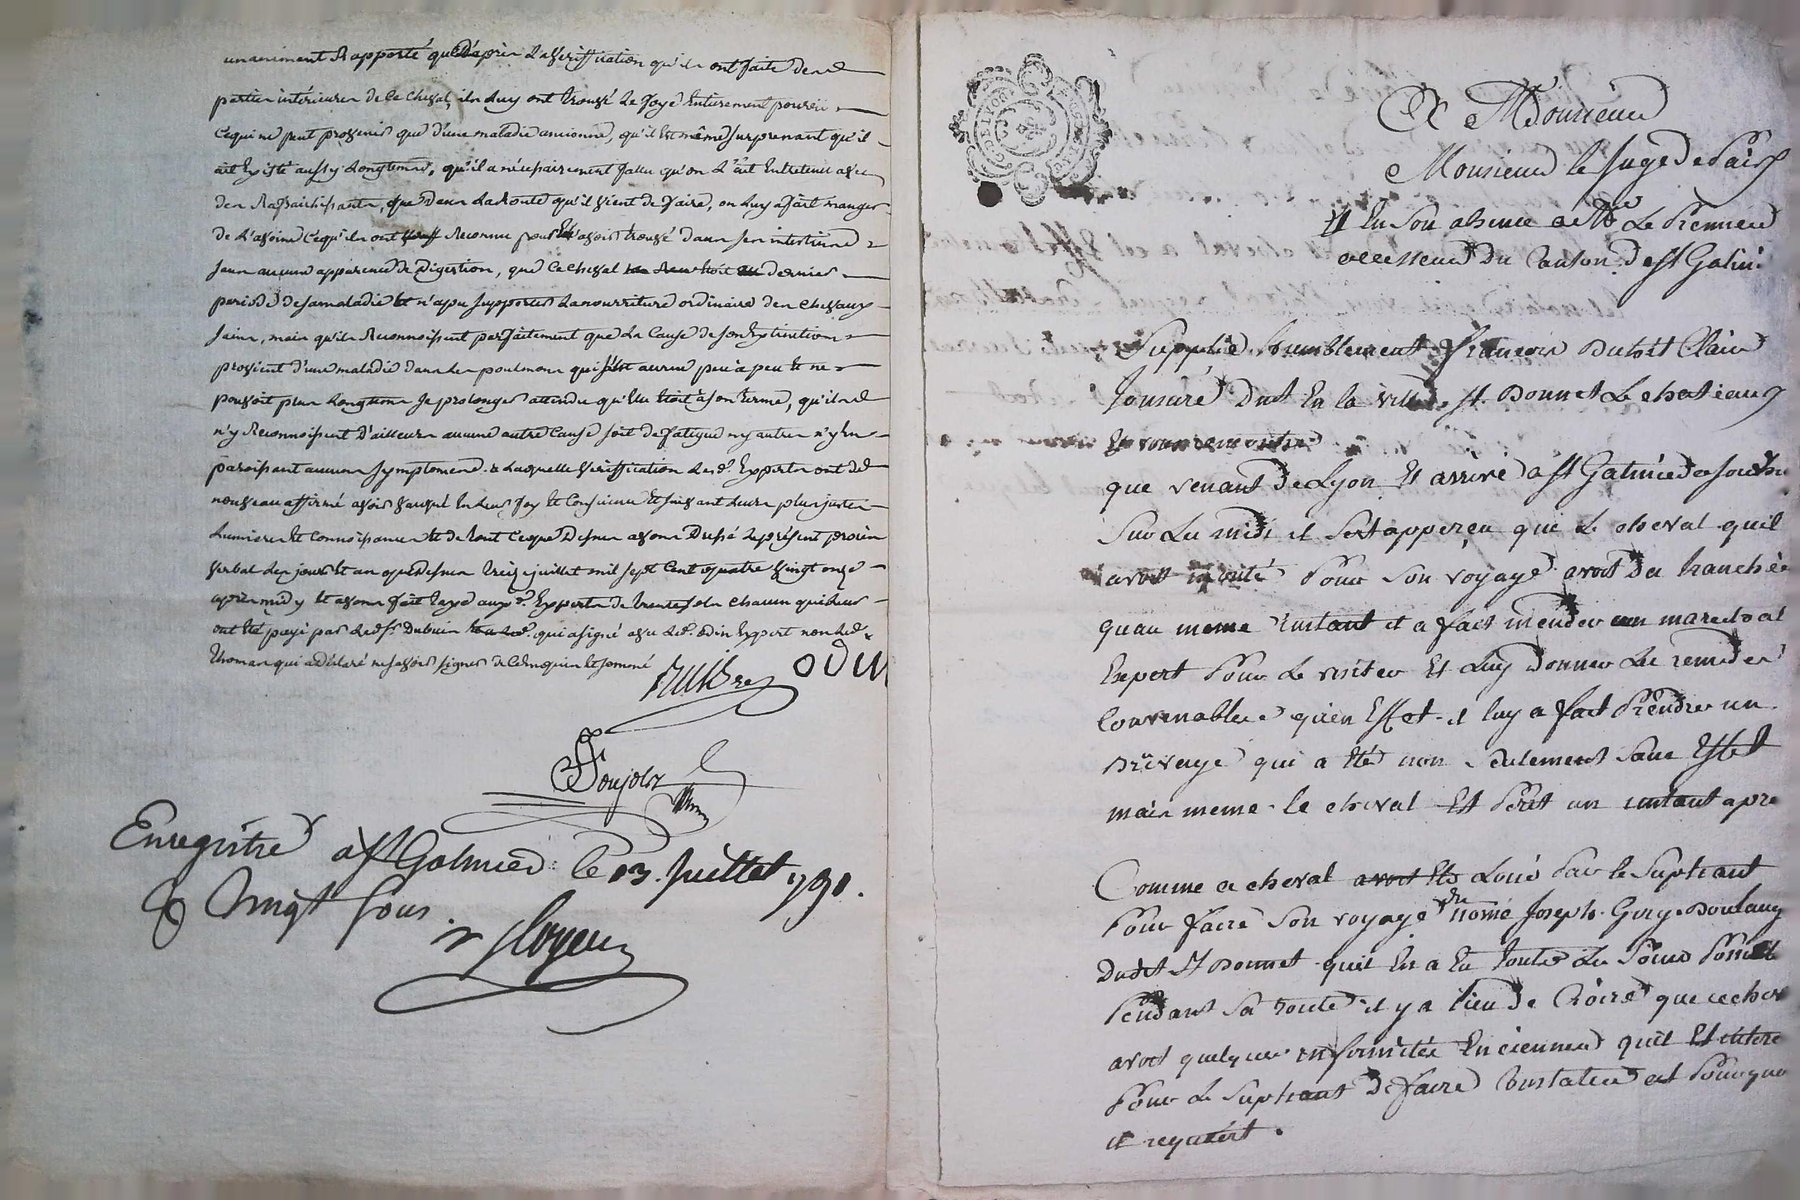 unaniment Rapporté que D'aprer la vériffication qu'ils ont faite des
partier intérieurer de ce cheval, iln luy ont trouvé le foye Entierement pourri
Ce qui ne peut provenir que d'une maladie ancienne, qu'il Est même surprenant qu'il
ait Existé aussy Longtems, qu'il a nécessairement fallu qu'on L'ait Entretenu avec
des Rafraichissants, que Dans La Route qu'il vient de faire, on luy a fait manger
de L'avoine Ce qu'iln ont Reconnu pour En avoir trouvé dans ses intestins
sans aucune apparence de Digestion, que Ce cheval dernier
periode de sa maladie n'a pu supporter La nourriture ordinaire des chevaux
sains, mais qu'iln Reconnoissent parfaitement que La Cause de son Extinction
provient d'une maladie dans les poulmons qui s'est accrue peu à peu Et ne
pouvoit plus Longtems se prolonger attendu qu'Elle Etoit à son terme, qu'ils
n'y Reconnoissent D'ailleurs aucune autre Cause soit de fatigue ny autres n'y En
paroissant aucuns symptomes. Laquelle vériffication Lesd. Experts ont de
nouveau affirmé avoir vaqué En Leur foy Et Conscience Et suivant Leurs plus justes
Lumieres Et Connoissances Et de tout Ceque Dessus avons Dressé Le présent procès
verbal les jour Et an que Dessus treize juillet mil sept Cent quatre vingt onze
après midy Et avons fait taxe auxd. Experts de trente sols chacun qui leur
ont Eté payé par led. sr. Dubuin qui a signé avec led. Odin Expert non led.
Thomas qui a déclaré ne savoir signer de Ce Enquis Et sommé
ODIN
Poujolz
Enregistré a St Galmier le 13. Juillet 1791.
Vingt sous.
A Monsieur
Monsieur le Juge de Paix
Et En Son absence a Mr Le Premier
assesseur Du Canton De St Galm
Supplie humblement François Clair
tonsuré Dmt En la ville St. Bonnet Le chateaux
En remontre
que venant De Lyon Et arrivé a St Galmier
Sur Le midi il Sest apperçu que Le cheval quil
avoit Pour Son voyage avoit Des tranchée
quau meme instant il a fait mender un marechal
Expert Pour Le visiter Et Luy donner Les remeder
Convenables quen Effet il luy a fait Prendre un
Breveuge qui a Eté non Seulement Sans Effet
mais meme le cheval Est Perit un instant apre
Comme ce cheval avoit Eté Loué Par le Supliant
Pour faire Son voyage du nomé Joseph Gery Boulang
Dudit St Bonnet quil En a Eu toutes Les Soins Possible
Pendant Sa route il y a lieu De Croire que ce chev
avoit quelques infirmitée Enciennes quil Est intere
Pour Le Supliant De faire Constater est Pourquoi
il requiert.